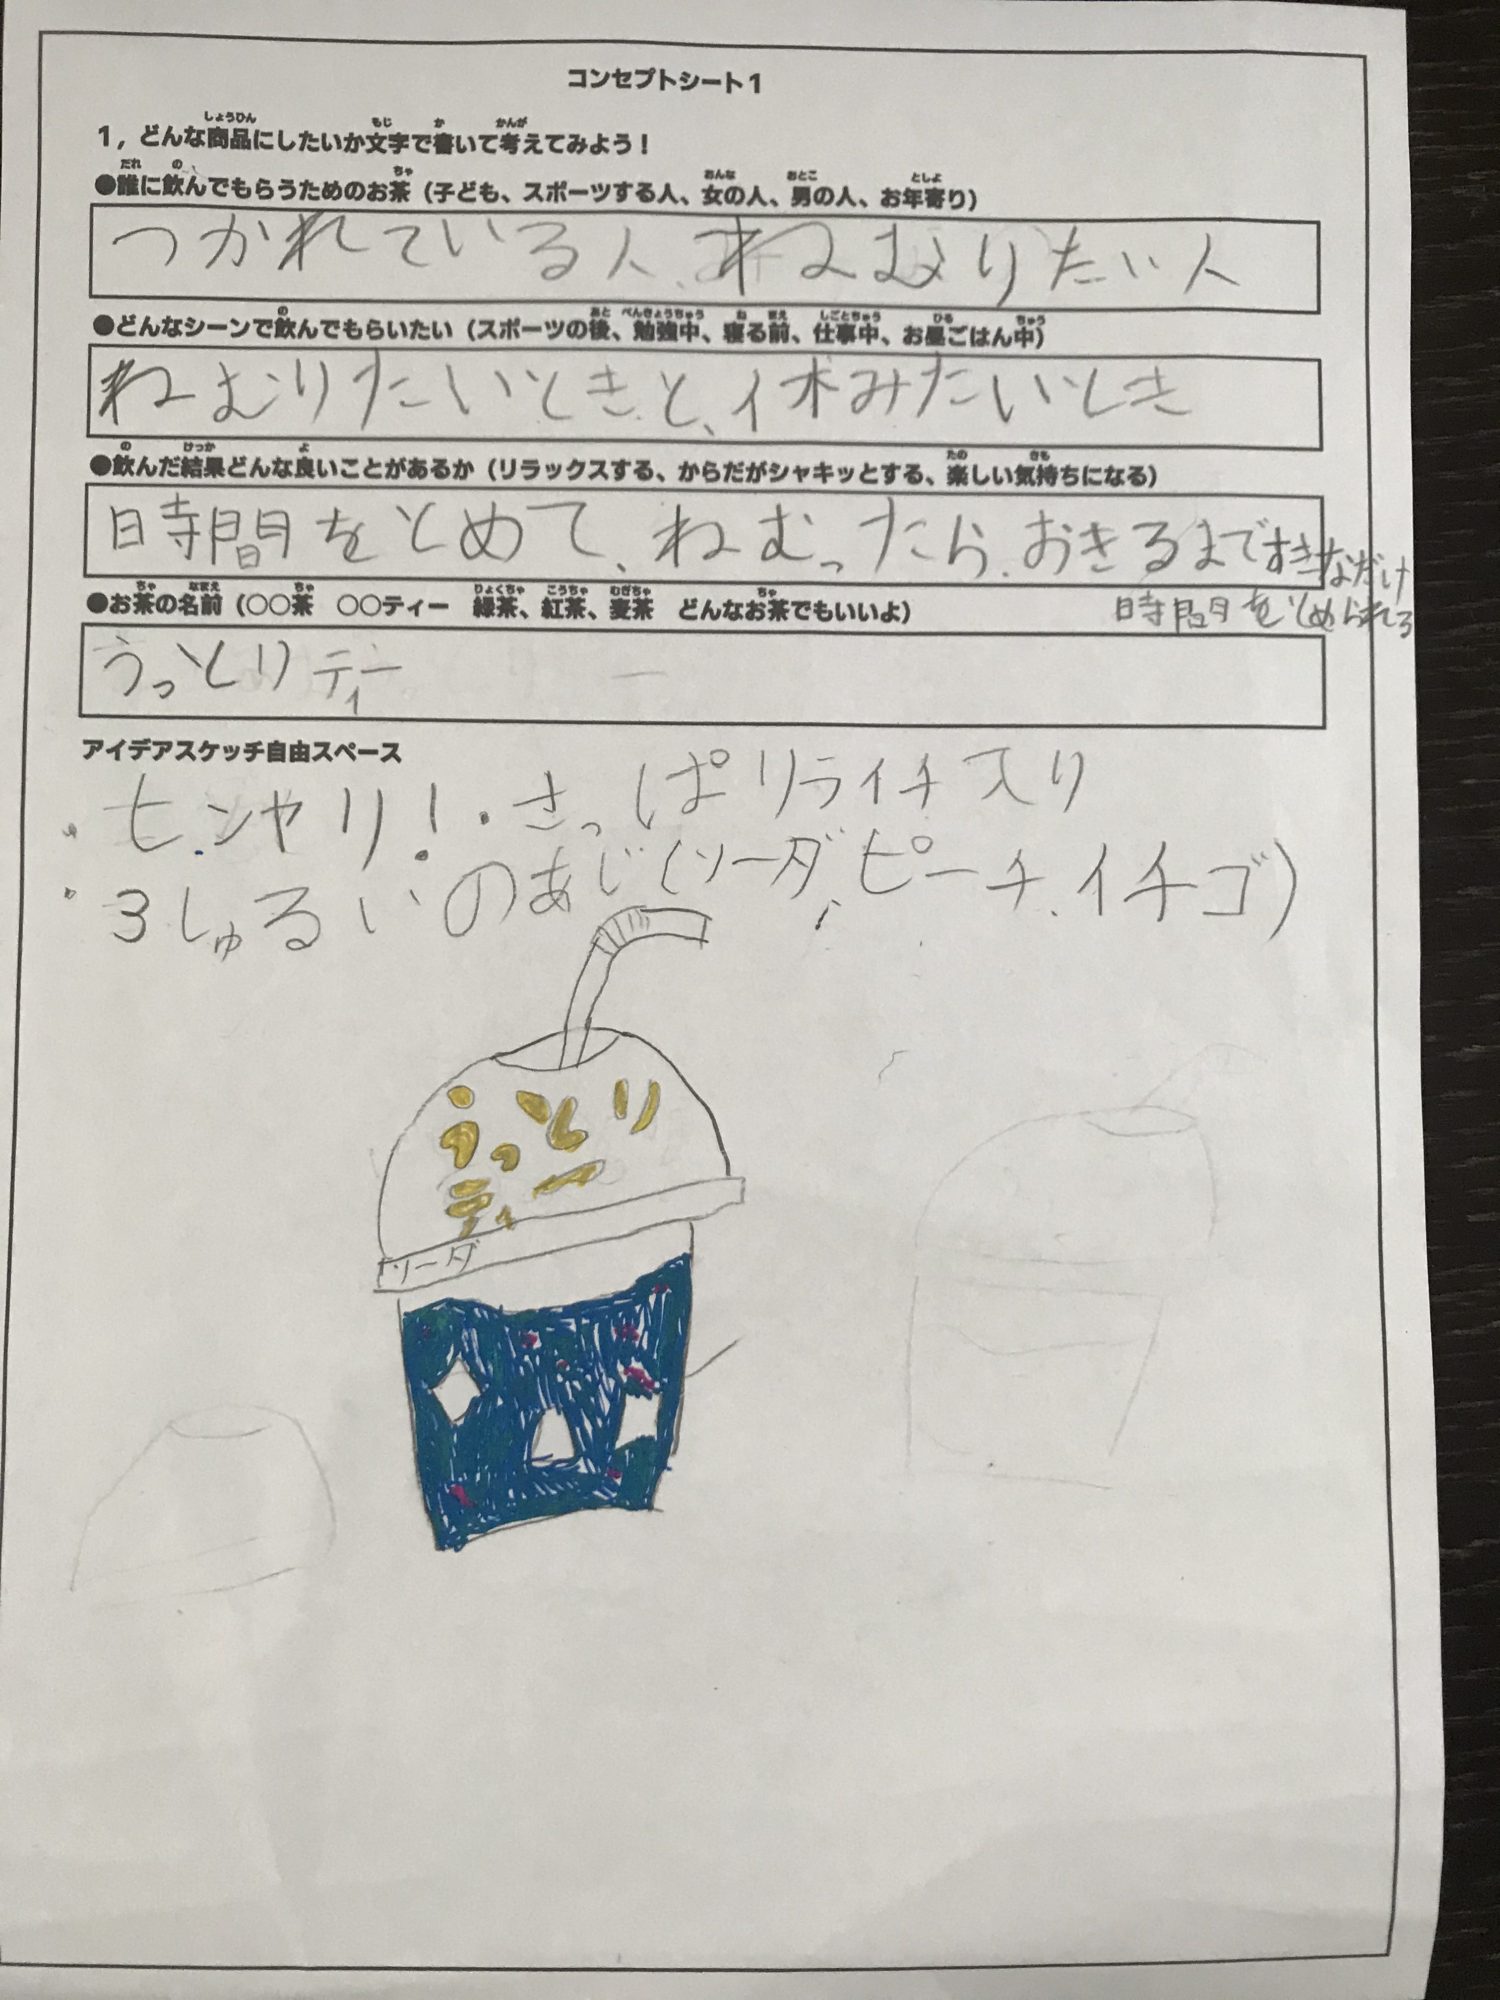 コンセプトシート1
1，どんな商品にしたいか文字で書いて考えてみよう！
●誰に飲んでもらうためのお茶（子ども、スポーツする人、女の人、男の人、お年寄り）
つかれている人、ねむりたい人
●どんなシーンで飲んでもらいたい（スポーツの後、勉強中、寝る前、仕事中、お昼ごはん中）
ねむりたいときと、休みたいとき
●飲んだ結果どんな良いことがあるか（リラックスする、からだがシャキッとする、楽しい気持ちになる）
時間をとめて、ねむったら、おきるまですきなだけ
時間をとめられる
●お茶の名前（○○茶　○○ティー　緑茶、紅茶、麦茶　どんなお茶でもいいよ）
うっとりティー
アイデアスケッチ自由スペース
・ヒンヤリ！・さっぱりライチ入り
・3しゅるいのあじ（ソーダ、ピーチ、イチゴ）
うっとり
ティー
ソーダ